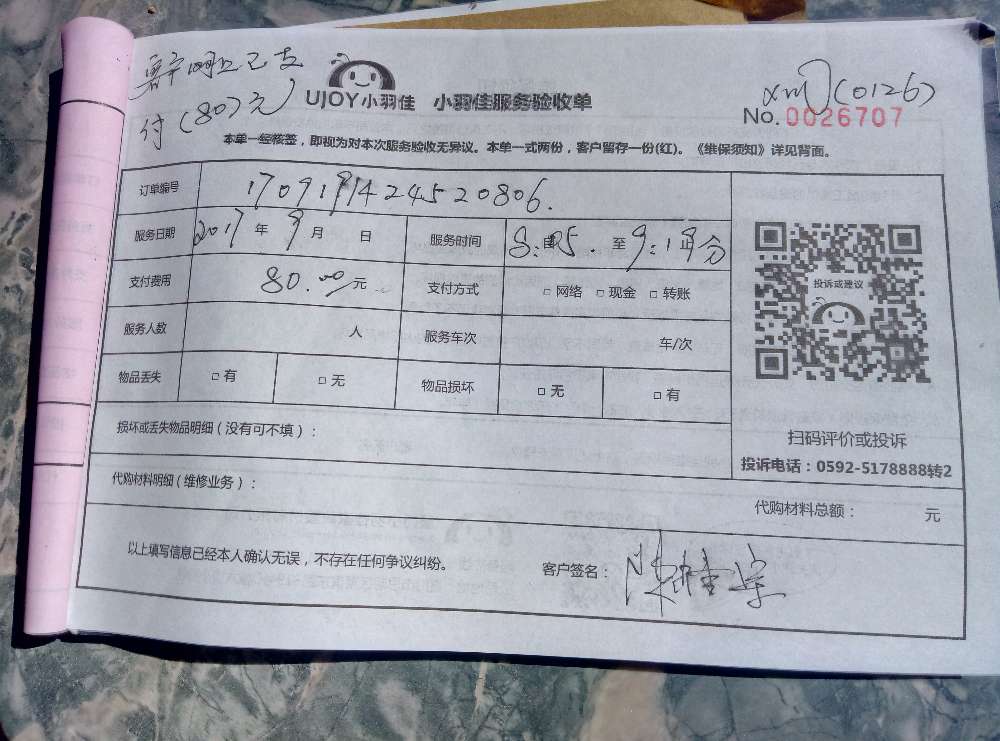 网上已支
付(80)元
UJOY小羽佳 小羽佳服务验收单
xm (0126)
No. 0026707
本单一经核签，即视为对本次服务验收无异议。本单一式两份，客户留存一份(红)。《维保须知》详见背面。
订单编号 170919142452 0806.
服务日期 2017年9月 日 服务时间 8:05. 至 9:19分
支付费用 80.00元 支付方式 □网络 □现金 □转账
服务人数 人 服务车次 车/次
物品丢失 □有 □无 物品损坏 □无 □有
投诉或建议
扫码评价或投诉
投诉电话：0592-5178888转2
损坏或丢失物品明细(没有可不填)：
代购材料明细(维修业务)：
代购材料总额： 元
以上填写信息已经本人确认无误，不存在任何争议纠纷。
客户签名：陈桂